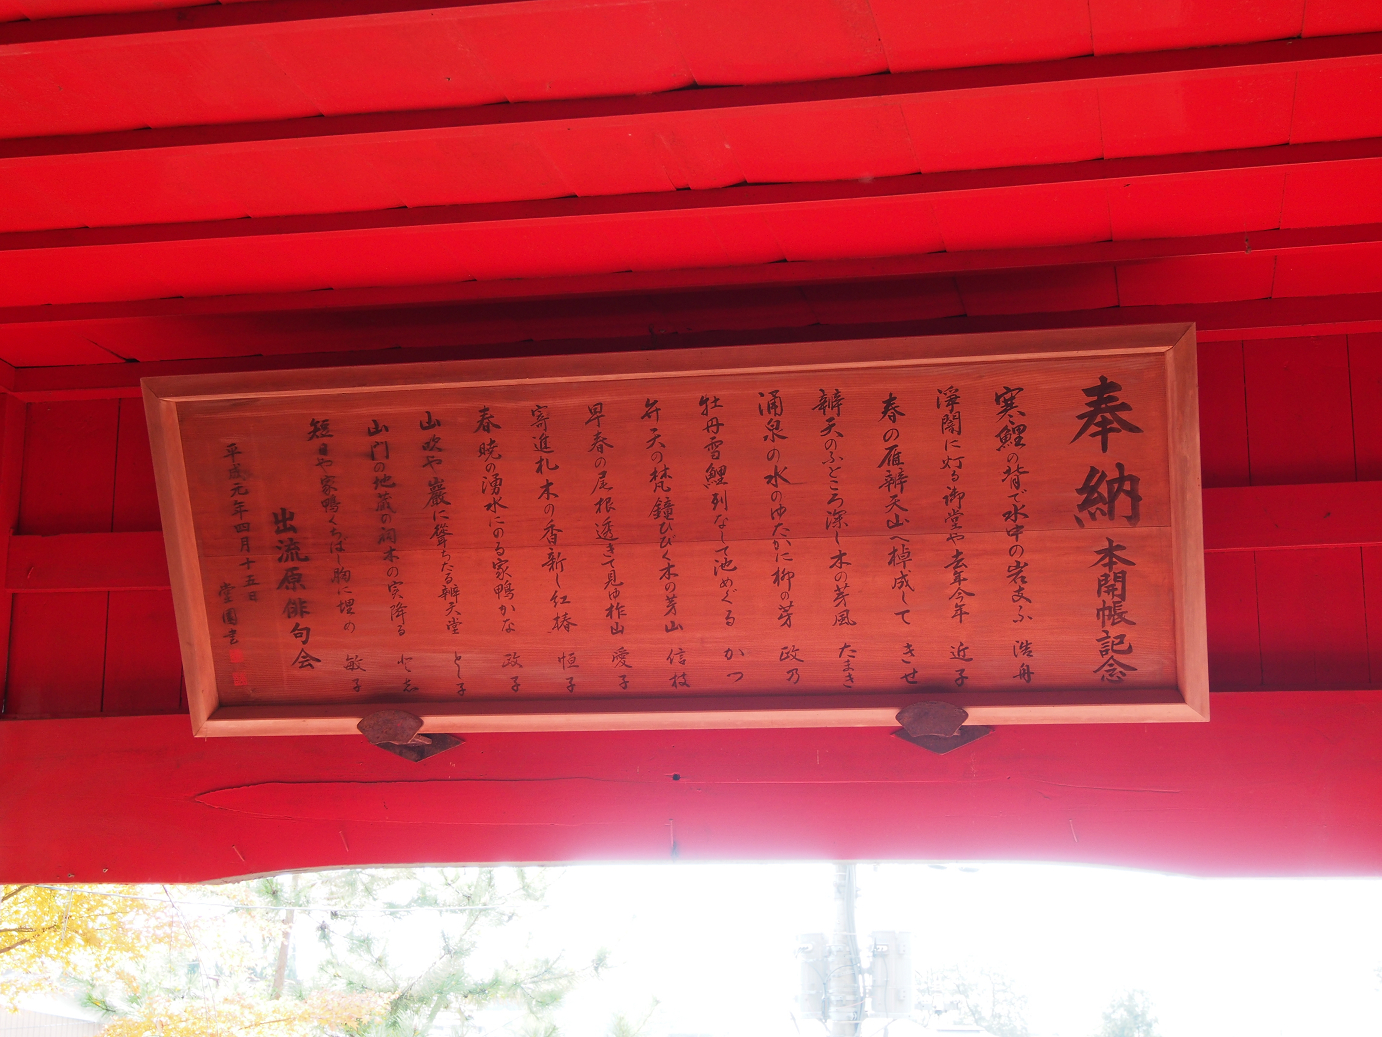 奉納 本開帳記念
寒鯉の背で水中の岩支ふ 浩舟
浄闇に灯る御堂や去年今年 近子
春の雁辨天山へ棹成して きせ
辨天のふところ深し木の芽風 たまき
涌泉の水のゆたかに柳の芽 政乃
牡丹雪鯉列なして池めぐる かつ
弁天の梵鐘ひびく木の芽山 信枝
早春の尾根透きて見ゆ柞山 愛子
寄進札木の香新し紅椿 恒子
春暁の湧水にのる家鴨かな 政子
山吹や巌に聳ちたる辨天堂 とし子
山門の地蔵の祠木の実降る とし
短日や家鴨くちばし胸に埋め 敏子
出流原俳句会
平成元年四月十五日